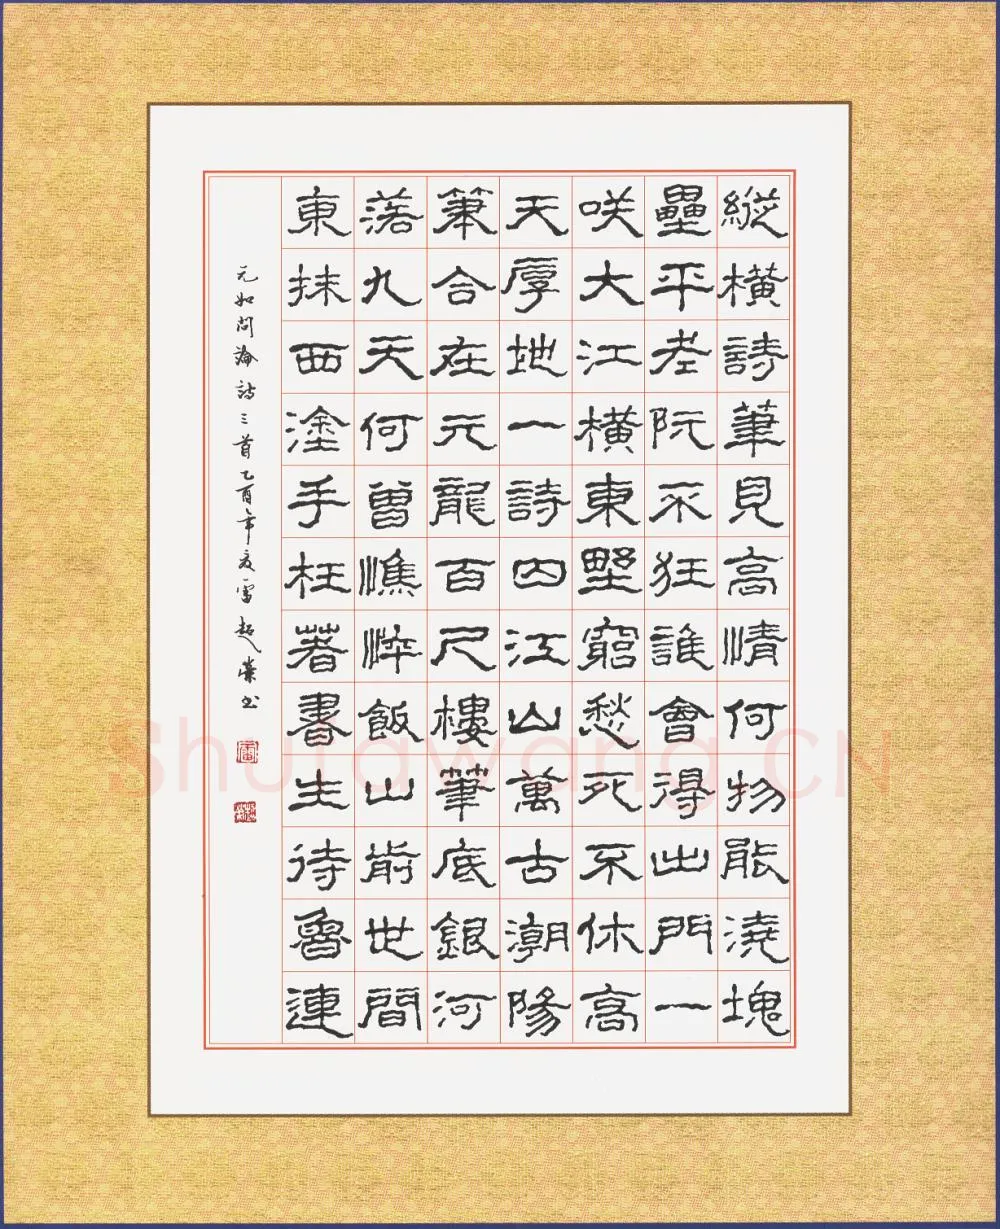 縱橫詩筆見高情何物能澆塊
壘平老阮不狂誰會得出門一
咲大江橫東野窮愁死不休高
天厚地一詩囚江山萬古潮陽
筆合在元龍百尺樓筆底銀河
落九天何曾憔悴飯山前世間
東抹西塗手枉著書生待魯連
元如問論詩三首乙酉年夏雷超業书
Shufawang.CN